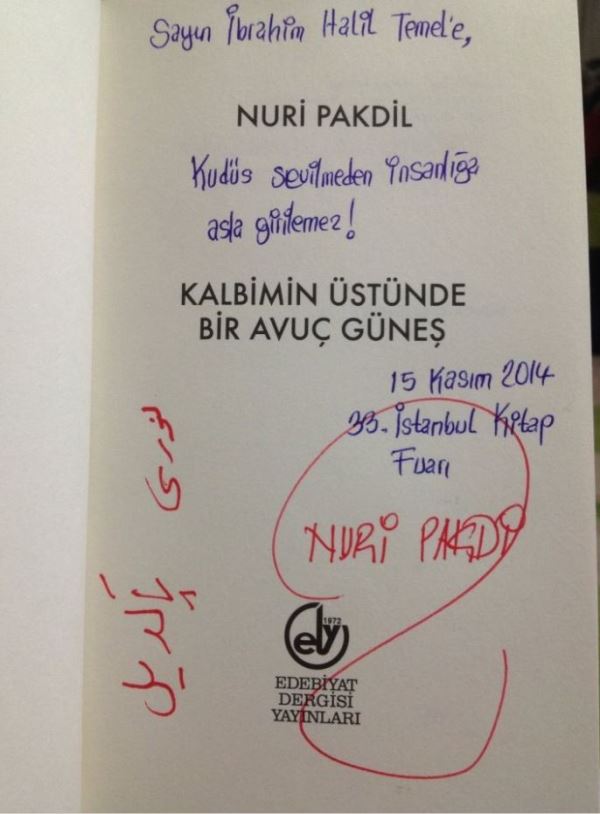 Sayın İbrahim Halil Temel'e,
NURİ PAKDİL
Kudüs sevilmeden insanlığa
asla girilemez!
KALBİMİN ÜSTÜNDE
BİR AVUÇ GÜNEŞ
15 Kasım 2014
33. İstanbul Kitap
Fuarı
NURİ PAKDİL
نوری
پاكديل
1972
edy
EDEBİYAT
DERGİSİ
YAYINLARI